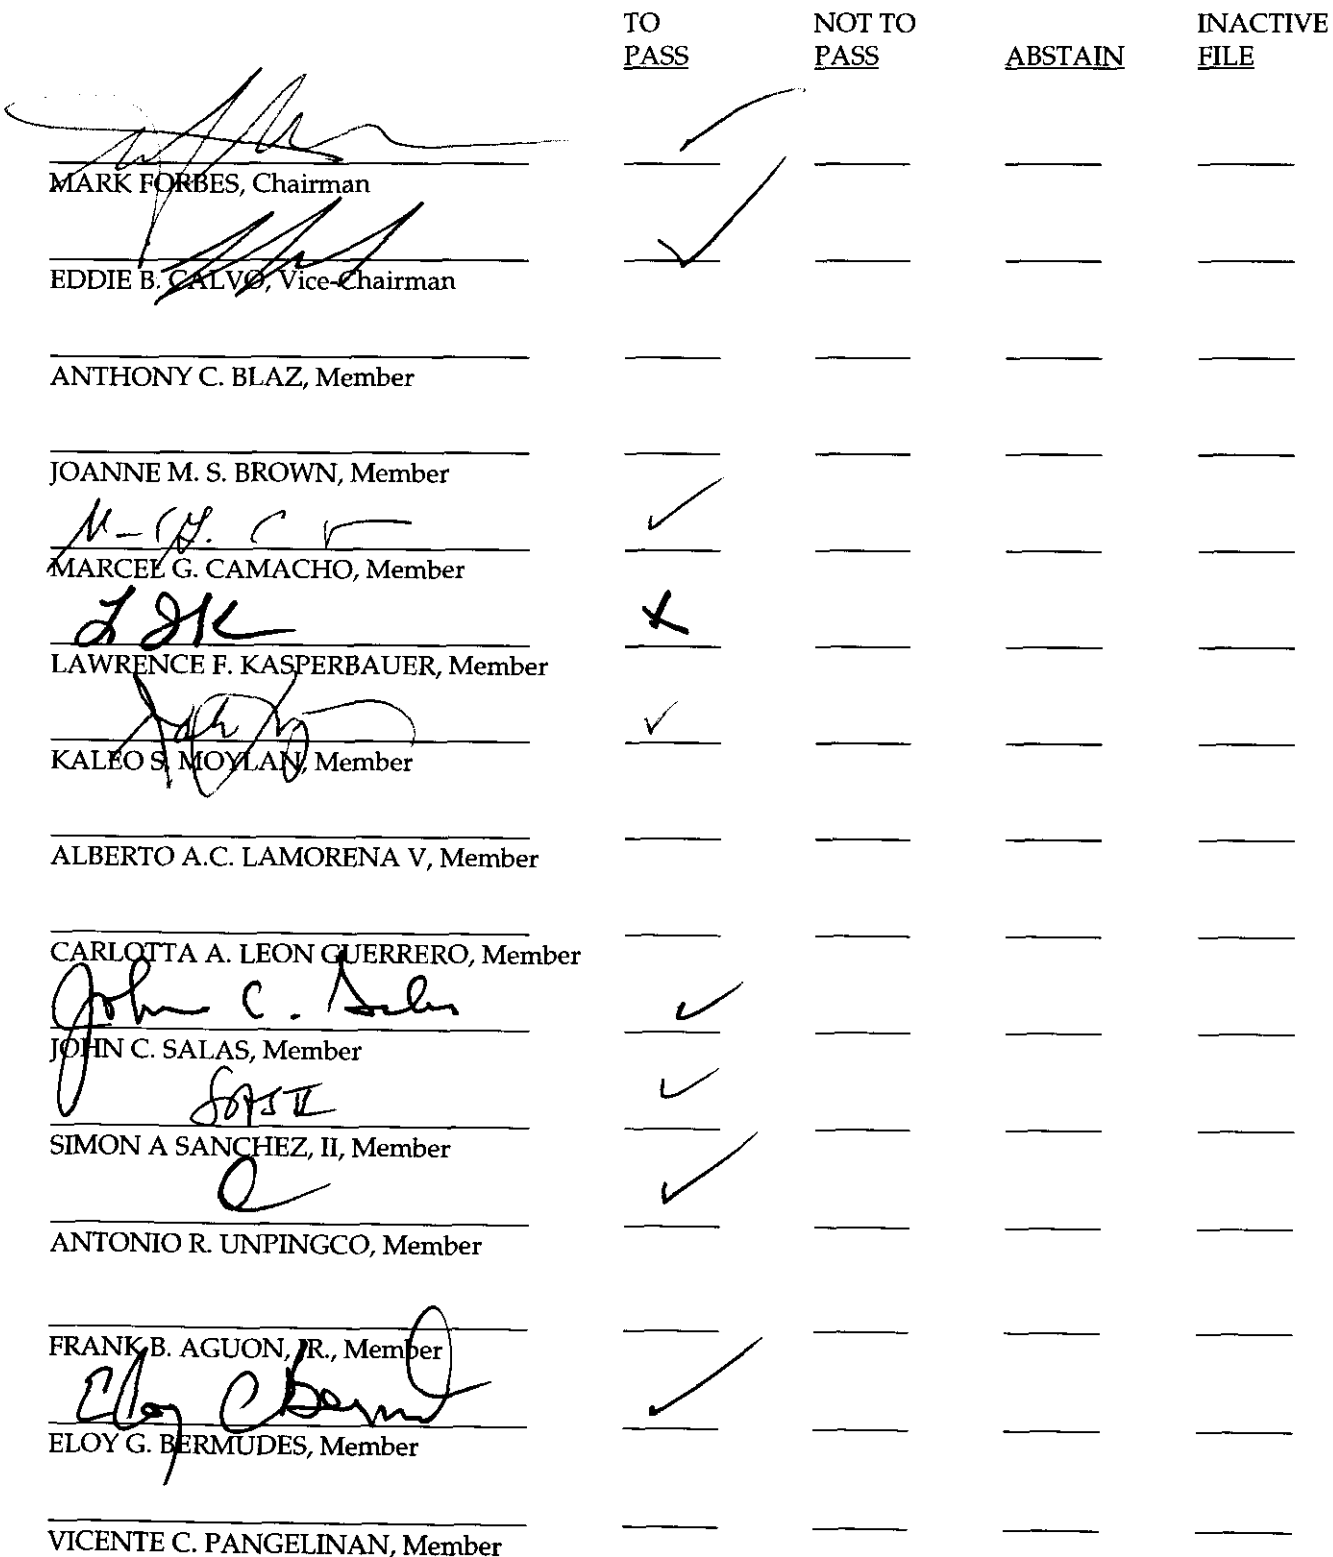 TO NOT TO INACTIVE
PASS PASS ABSTAIN FILE
MARK FORBES, Chairman
EDDIE B. CALVO, Vice-Chairman
ANTHONY C. BLAZ, Member
JOANNE M. S. BROWN, Member
MARCEL G. CAMACHO, Member
LAWRENCE F. KASPERBAUER, Member
KALEO S. MOYLAN, Member
ALBERTO A.C. LAMORENA V, Member
CARLOTTA A. LEON GUERRERO, Member
John C. Salas
JOHN C. SALAS, Member
SIMON A SANCHEZ, II, Member
ANTONIO R. UNPINGCO, Member
FRANK B. AGUON, JR., Member
ELOY G. BERMUDES, Member
VICENTE C. PANGELINAN, Member